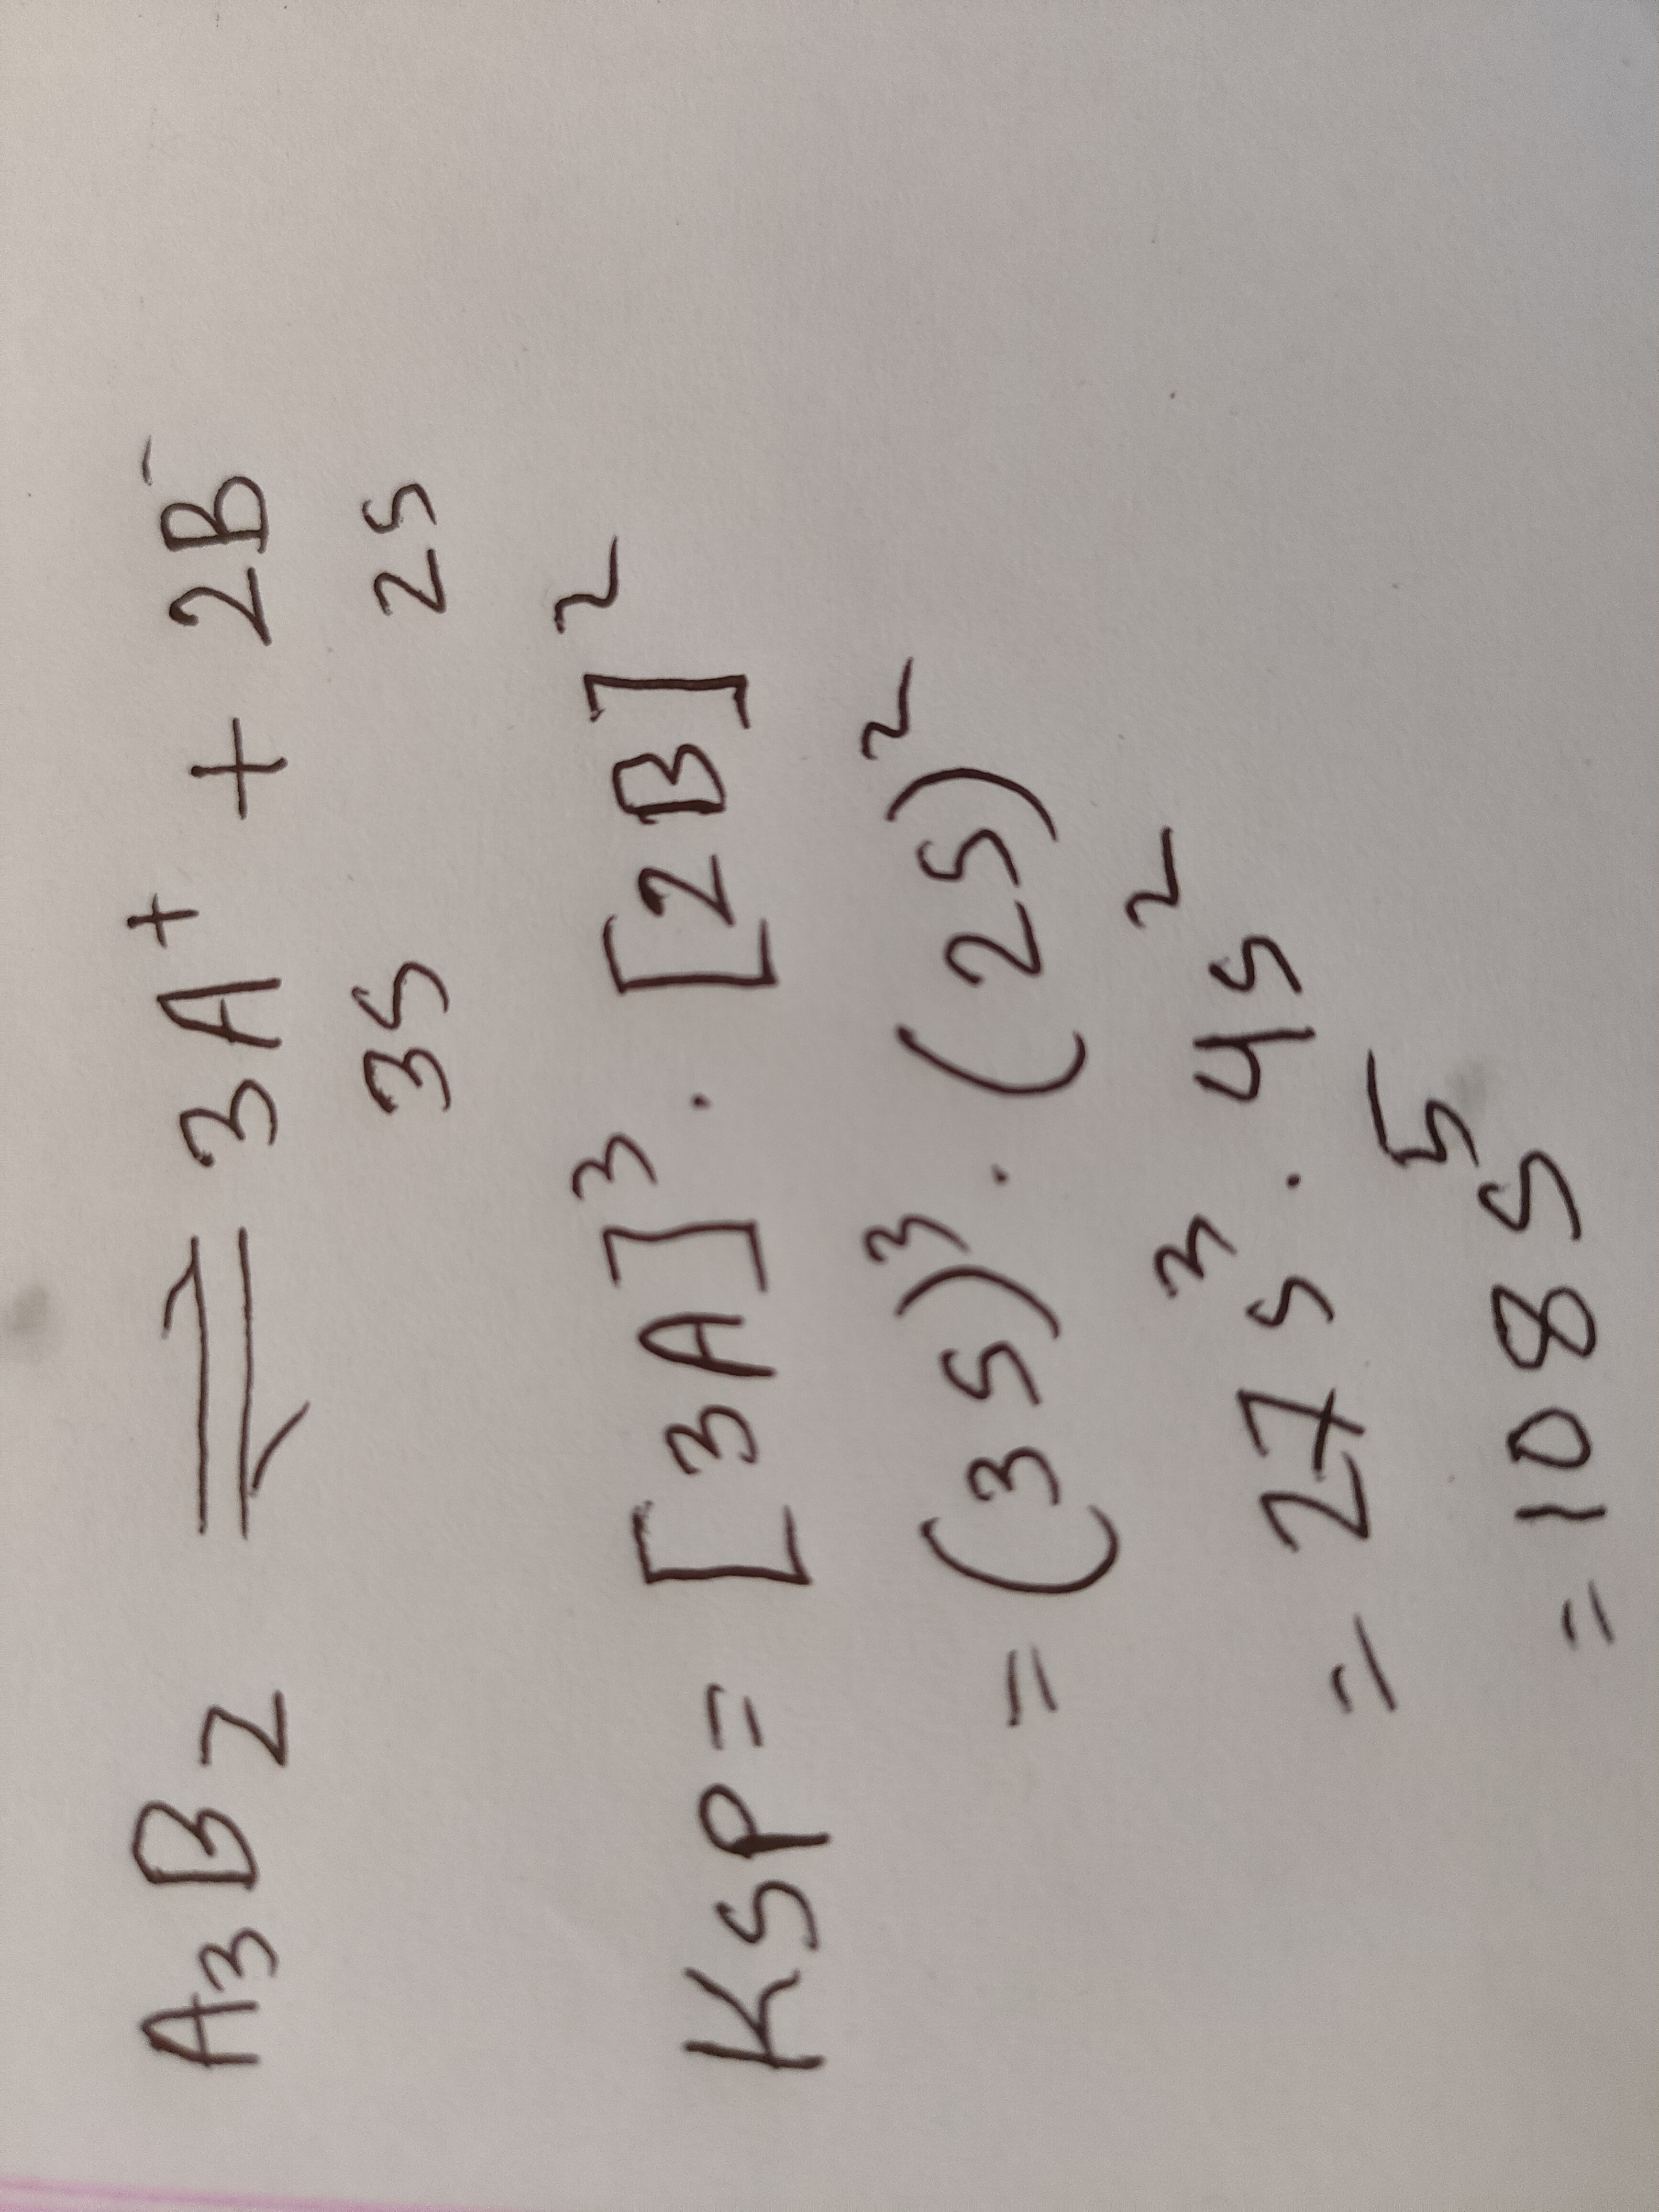 A₃B₂ ⇌ 3A⁺ + 2B⁻
3S 2S
KSP= [3A]³ . [2B]²
= (3S)³ . (2S)²
= 27S³ . 4S²
= 108S⁵